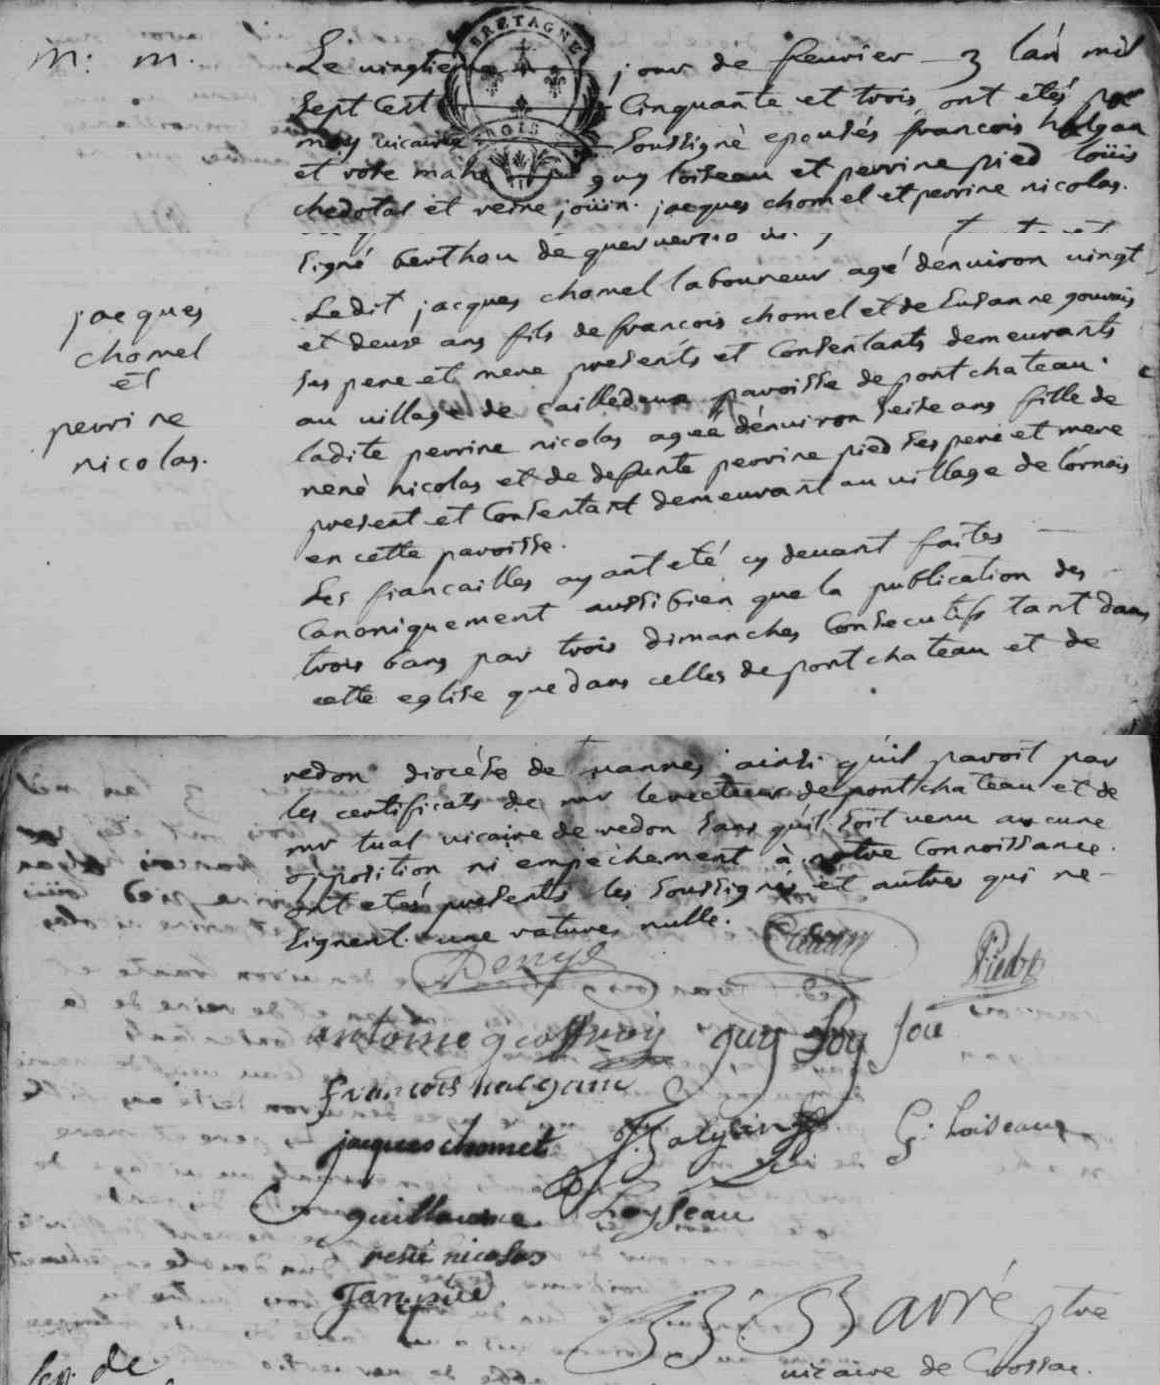 M: M.
Le vingtieme jour de feuvrier 3 lan mil
BRETAGNE
ROIS
Sept Cest Cinquante et trois ont etés par
moy vicaire Soussigné epousés francois halgan
et rose mahe guy loiseau et perrine pied loüis
chedotal et reine joüin. jacques chomel et perrine nicolas.
Signé berthou de querversio
jacques
chomel
et
perrine
nicolas.
Ledit jacques chomel laboureur agé dénuiron vingt
et deuse ans fils de francois chomel et de Susanne gouvais
Ses pere et mere presents et Consentants demeurants
au village de cailledeux paroisse de pontchateau.
ladite perrine nicolas ageé dénuiron Seise ans fille de
rené nicolas et de defunte perrine pied Ses pere et mere
present et Consentant demeurant au village de lornais
en cette paroisse.
Les fiancailles ayant eté cy devant faites
Canoniquement aussi bien que la publication des
trois bans par trois dimanches Consecutifs tant dans
cette eglise que dans celles de pontchateau et de
redon diocése de vannes ainsi quil paroit par
les certificats de mr le recteur de pontchateau et de
mr tual vicaire de redon Sans quil Soit venu aucune
opposition ni empéchement à notre Connoissance.
ont etés presents les Soussignés et autres qui ne
Signent. une rature nulle.
Denyé
Piedx
antoine geoffroy guy Loy sou
francois halgan
jacques chomel J. halgan G: Loiseau
guillaume Loyseau
rené nicolas
Jan pied
J: B arré ptre
vicaire de Crossac.